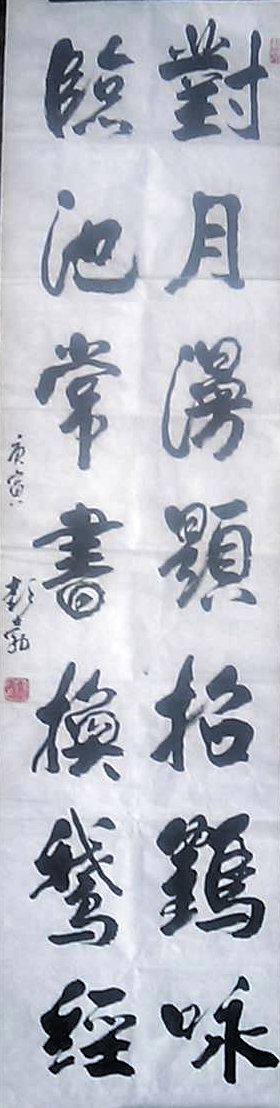 對月漫題招鶴咏
臨池常書換鵝經
庚寅
彭